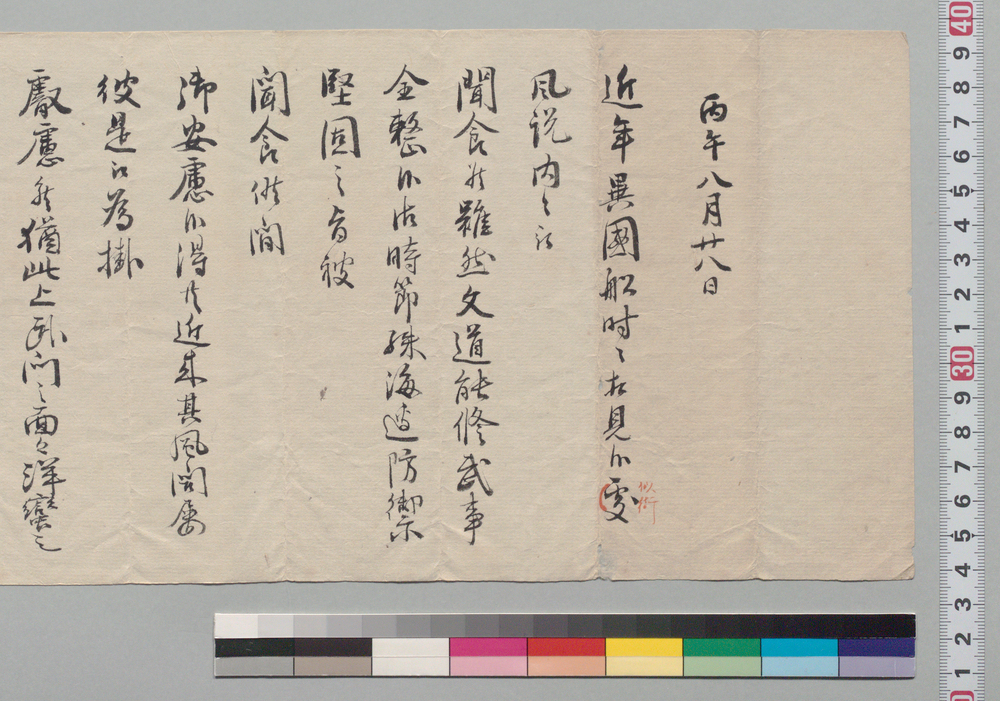 丙午八月廿八日
近年異國船時々相見候處
似衍
風説内々被
聞食候雖然文道能修武事
全整候御時節殊海邊防禦
堅固之旨被
聞食候間
御安慮候得共近来其風聞屡
彼是被為掛
叡慮候猶此上武門之面々洋蠻之
40 9 8 7 6 5 4 3 2 1 30 9 8 7 6 5 4 3 2 1